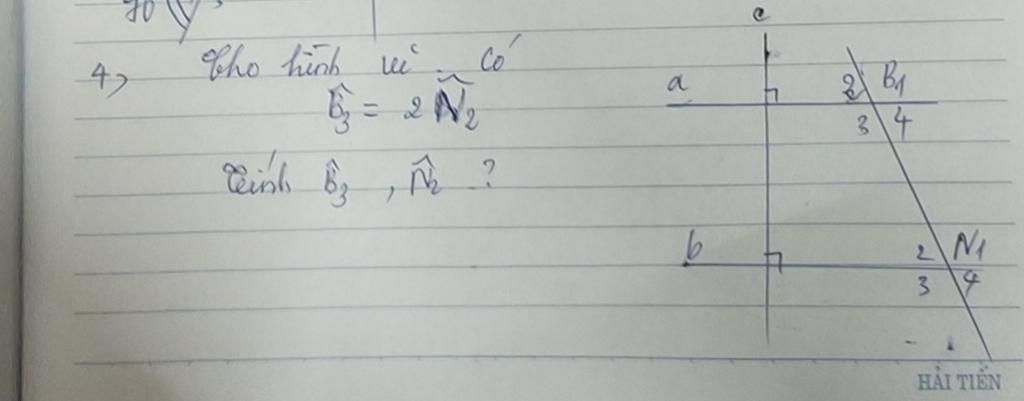 4) Cho hình vẽ có
B̂₃ = 2 N̂₂
Tính B̂₃ , N̂₂ ?
c
a
2 B1
3 4
b
2 N1
3 4
HẢI TIẾN